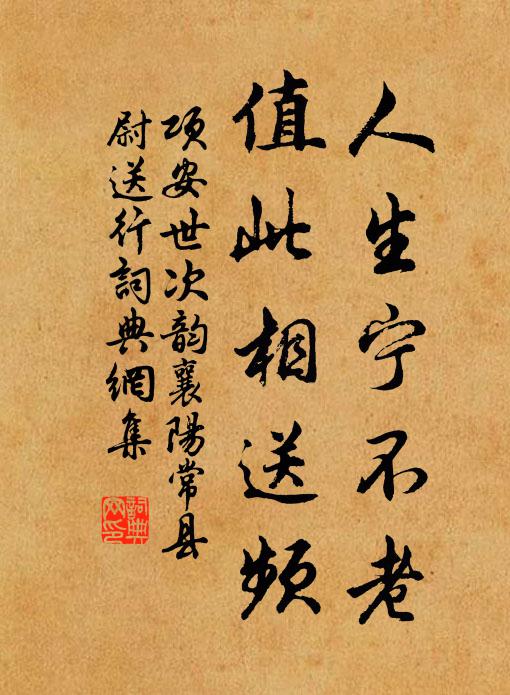 人生宁不老
值此相送频
项安世次韵襄陽常县
尉送行詞典網集
詞典
网印